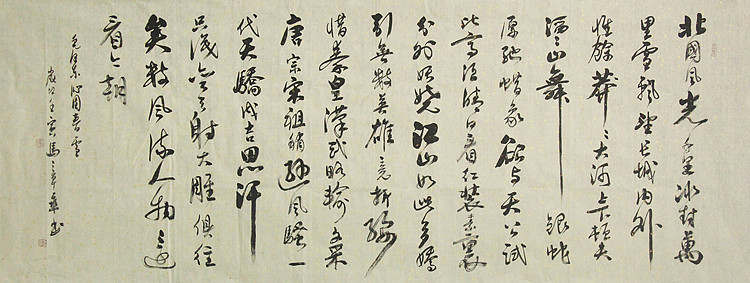 北國風光千里冰封萬
里雪飄望長城內外
惟餘莽々大河上下頓失
滔々山舞銀蛇
原馳蜡象欲與天公試
比高須晴日看紅裝素裹
分外妖嬈江山如此多嬌
引無數英雄竞折腰
惜秦皇漢武略輸文采
唐宗宋祖稍遜風騷一
代天驕成吉思汗
只識弯弓射大雕俱往
矣數風流人物还
看今朝
毛澤東沁園春雪
歲次壬寅馬書